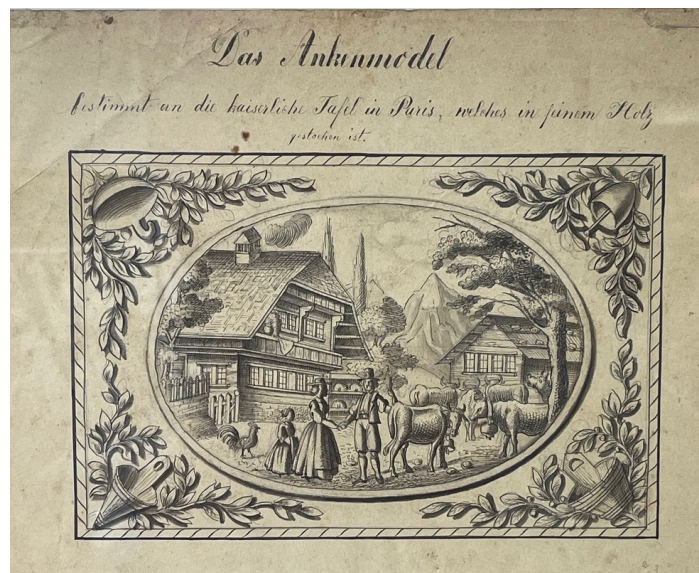 Das Ankenmodel
bestimmt an die kaiserliche Tafel in Paris, welches in feinem Holz
gestochen ist.